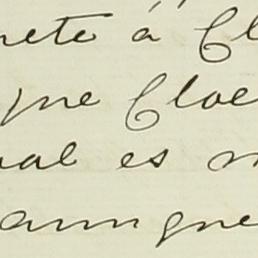 nete á Cl
que Cloe
ual es n
aunque